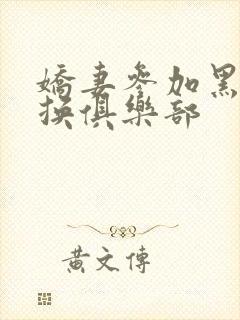 嬌妻參加黑
換俱樂部
黃文傳